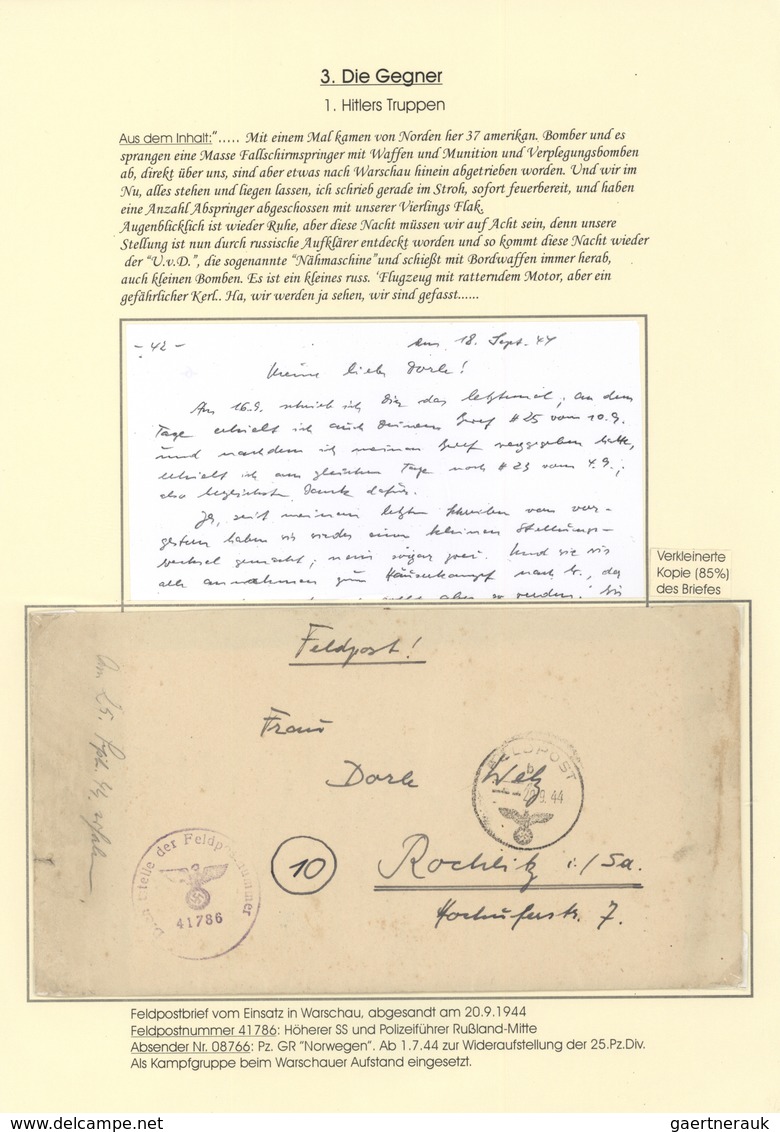 3. Die Gegner
1. Hitlers Truppen
Aus dem Inhalt:"..... Mit einem Mal kamen von Norden her 37 amerikan. Bomber und es
sprangen eine Masse Fallschirmspringer mit Waffen und Munition und Verplegungsbomben
ab, direkt über uns, sind aber etwas nach Warschau hinein abgetrieben worden. Und wir im
Nu, alles stehen und liegen lassen, ich schrieb gerade im Stroh, sofort feuerbereit, und haben
eine Anzahl Abspringer abgeschossen mit unserer Vierlings Flak.
Augenblicklich ist wieder Ruhe, aber diese Nacht müssen wir auf Acht sein, denn unsere
Stellung ist nun durch russische Aufklärer entdeckt worden und so kommt diese Nacht wieder
der "U.v.D.", die sogenannte "Nähmaschine"und schießt mit Bordwaffen immer herab,
auch kleinen Bomben. Es ist ein kleines russ. 'Flugzeug mit ratterndem Motor, aber ein
gefährlicher Kerl.. Ha, wir werden ja sehen, wir sind gefasst......
- 42 - den 18. Sept. 44
Meine liebe Dorle!
Am 16.9. schrieb ich Dir das letztemal, an dem
Tage erhielt ich auch Deinen Brief #25 vom 10.9.
und nachdem ich meinen Brief weggegeben hatte,
erhielt ich am gleichen Tage noch #23 vom 4.9.;
also herzlichsten Dank dafür.
Ja, seit meinem letzten Schreiben vom vor-
gestern haben wir wieder einen kleinen Stellungs-
wechsel gemacht; nein sogar zwei. Und wie wir
alle annahmen zum Häuserkampf nach W., der
Verkleinerte
Kopie (85%)
des Briefes
Feldpost!
Frau
Dorle Welz
FELDPOST
b
9.44
10
Rochlitz i./Sa.
Hochuferstr. 7.
Dienststelle der Feldpostnummer
41786
Feldpostbrief vom Einsatz in Warschau, abgesandt am 20.9.1944
Feldpostnummer 41786: Höherer SS und Polizeiführer Rußland-Mitte
Absender Nr. 08766: Pz. GR "Norwegen". Ab 1.7.44 zur Wideraufstellung der 25.Pz.Div.
Als Kampfgruppe beim Warschauer Aufstand eingesetzt.
gaertnerauk